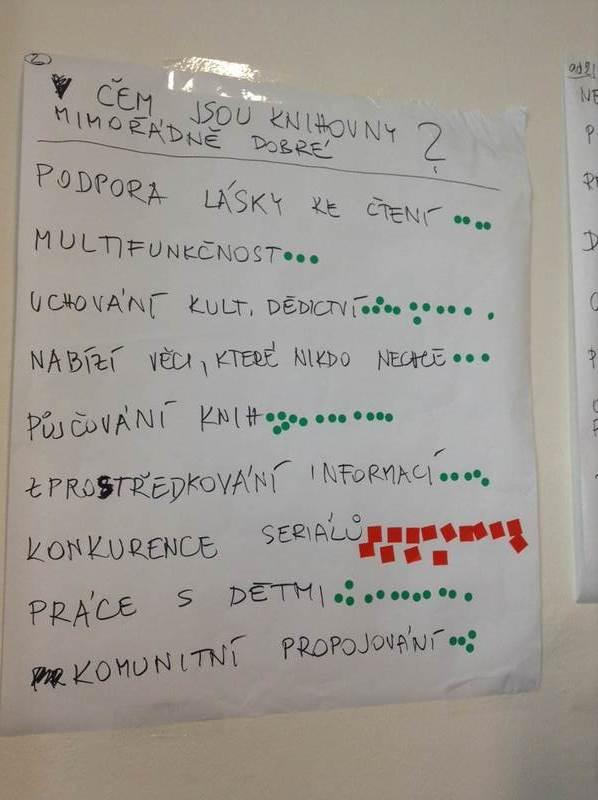 2
V ČEM JSOU KNIHOVNY
MIMOŘÁDNĚ DOBRÉ ?
PODPORA LÁSKY KE ČTENÍ
MULTIFUNKČNOST
UCHOVÁNÍ KULT. DĚDICTVÍ
NABÍZÍ VĚCI, KTERÉ NIKDO NECHCE
PŮJČOVÁNÍ KNIH
ZPROSTŘEDKOVÁNÍ INFORMACÍ
KONKURENCE SERIÁLŮ
PRÁCE S DĚTMI
KOMUNITNÍ PROPOJOVÁNÍ
NE
P